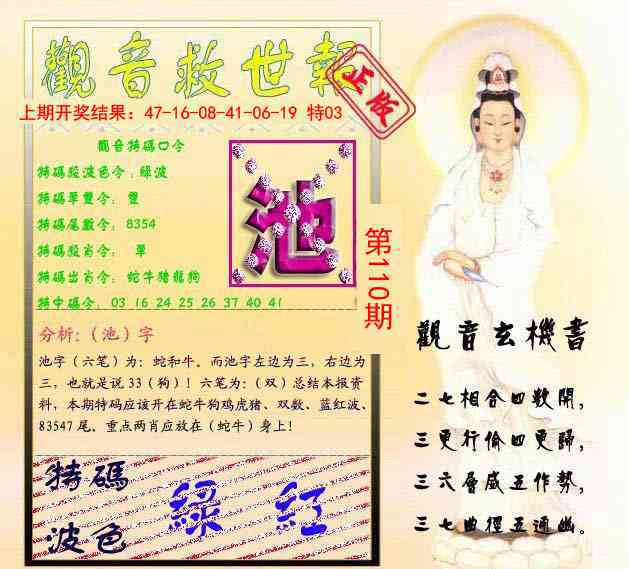 觀音救世報
正版
上期开奖结果：47-16-08-41-06-19 特03
觀音特碼口令
特碼殺波色令：綠波
特碼單雙令： 雙
特碼尾數令：8354
特碼殺肖令： 單
特碼出肖令： 蛇牛豬龍狗
特中碼令：03 16 24 25 26 37 40 41
池
第110期
分析：（池）字
池字（六笔）为：蛇和牛。而池字左边为三，右边为
三，也就是说33（狗）！六笔为：（双）总结本报资
料，本期特码应该开在蛇牛狗鸡虎猪、双数、蓝红波、
83547尾、重点两肖应放在（蛇牛）身上！
特碼
波色
綠 紅
觀音玄機書
二七相合四數開，
三更行偷四更歸，
三六層威五作勢，
三七曲徑五通幽。